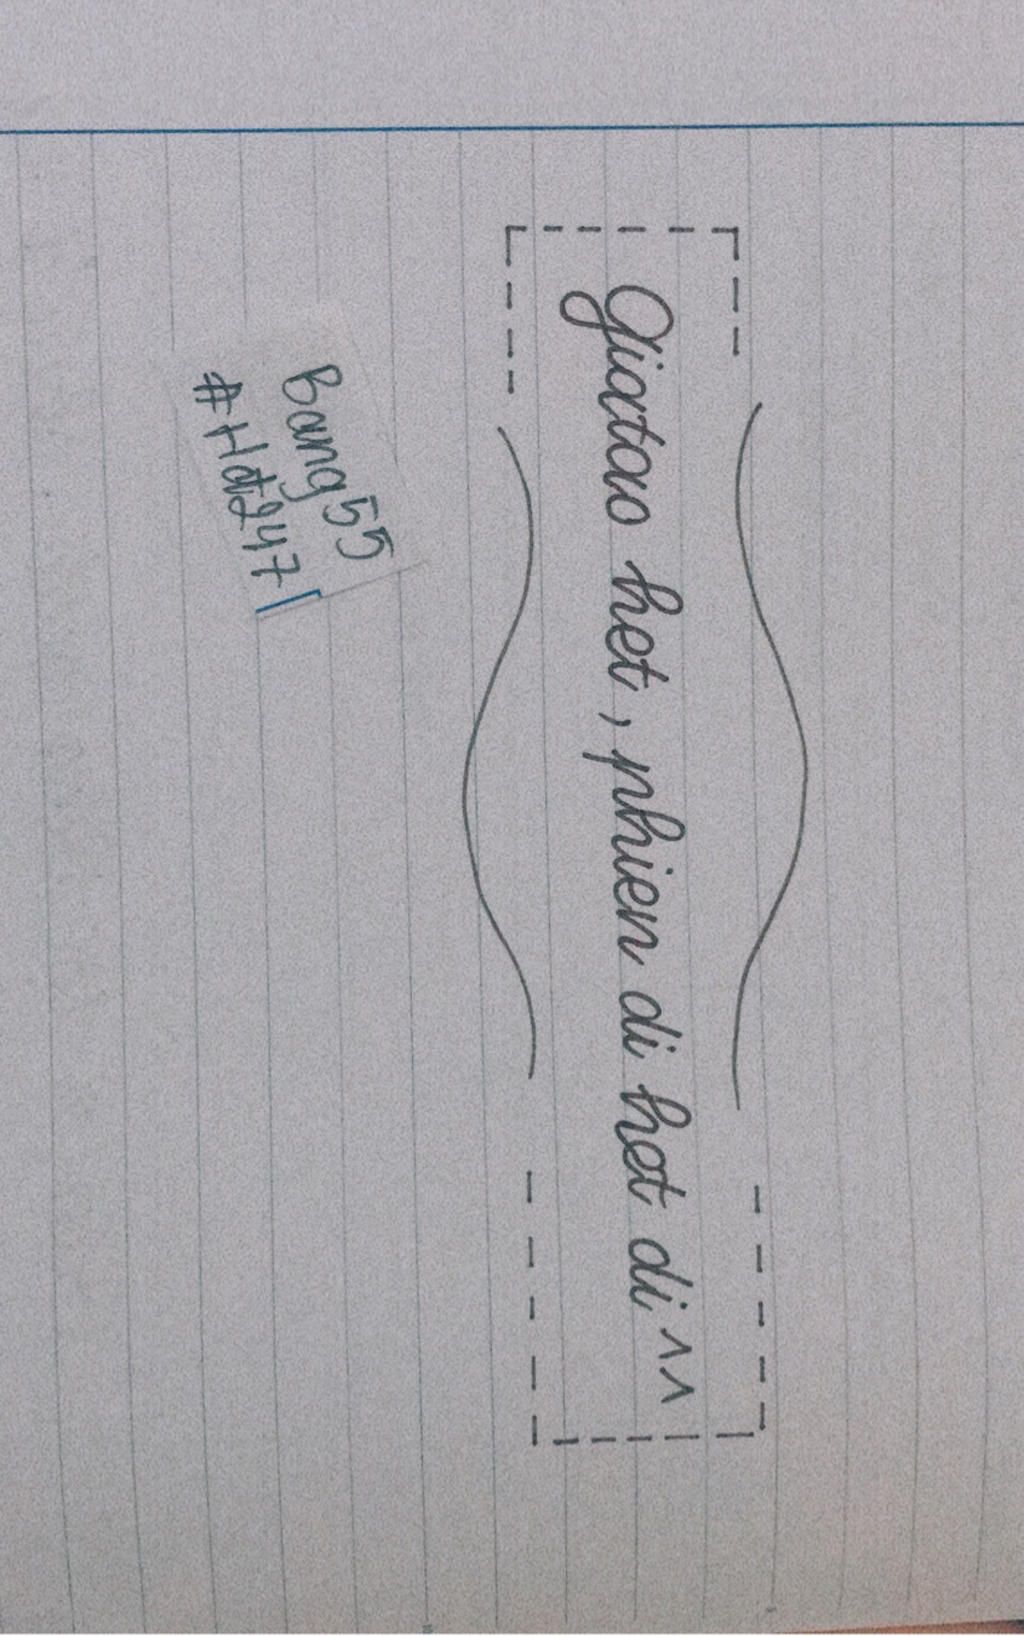 Giatao het, phien di het di ^^
Bang55
#Hdt247